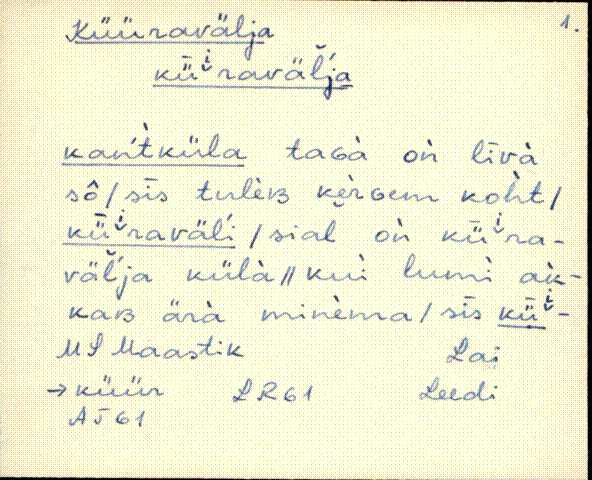 1.
Küüravälja
kǖˇi̯ravälja
kan̆t̀küla taGà oǹ līvà
sô / sīs tulèʙ kèrɢem koh̀t /
kǖiraväli / sial oǹ kǖira-
välja külà // kui lumì ak̀-
kaʙ ärà minèma / sīs kǖi-
MS Maastik Lai
→ küür LR61 Leedi
AJ61